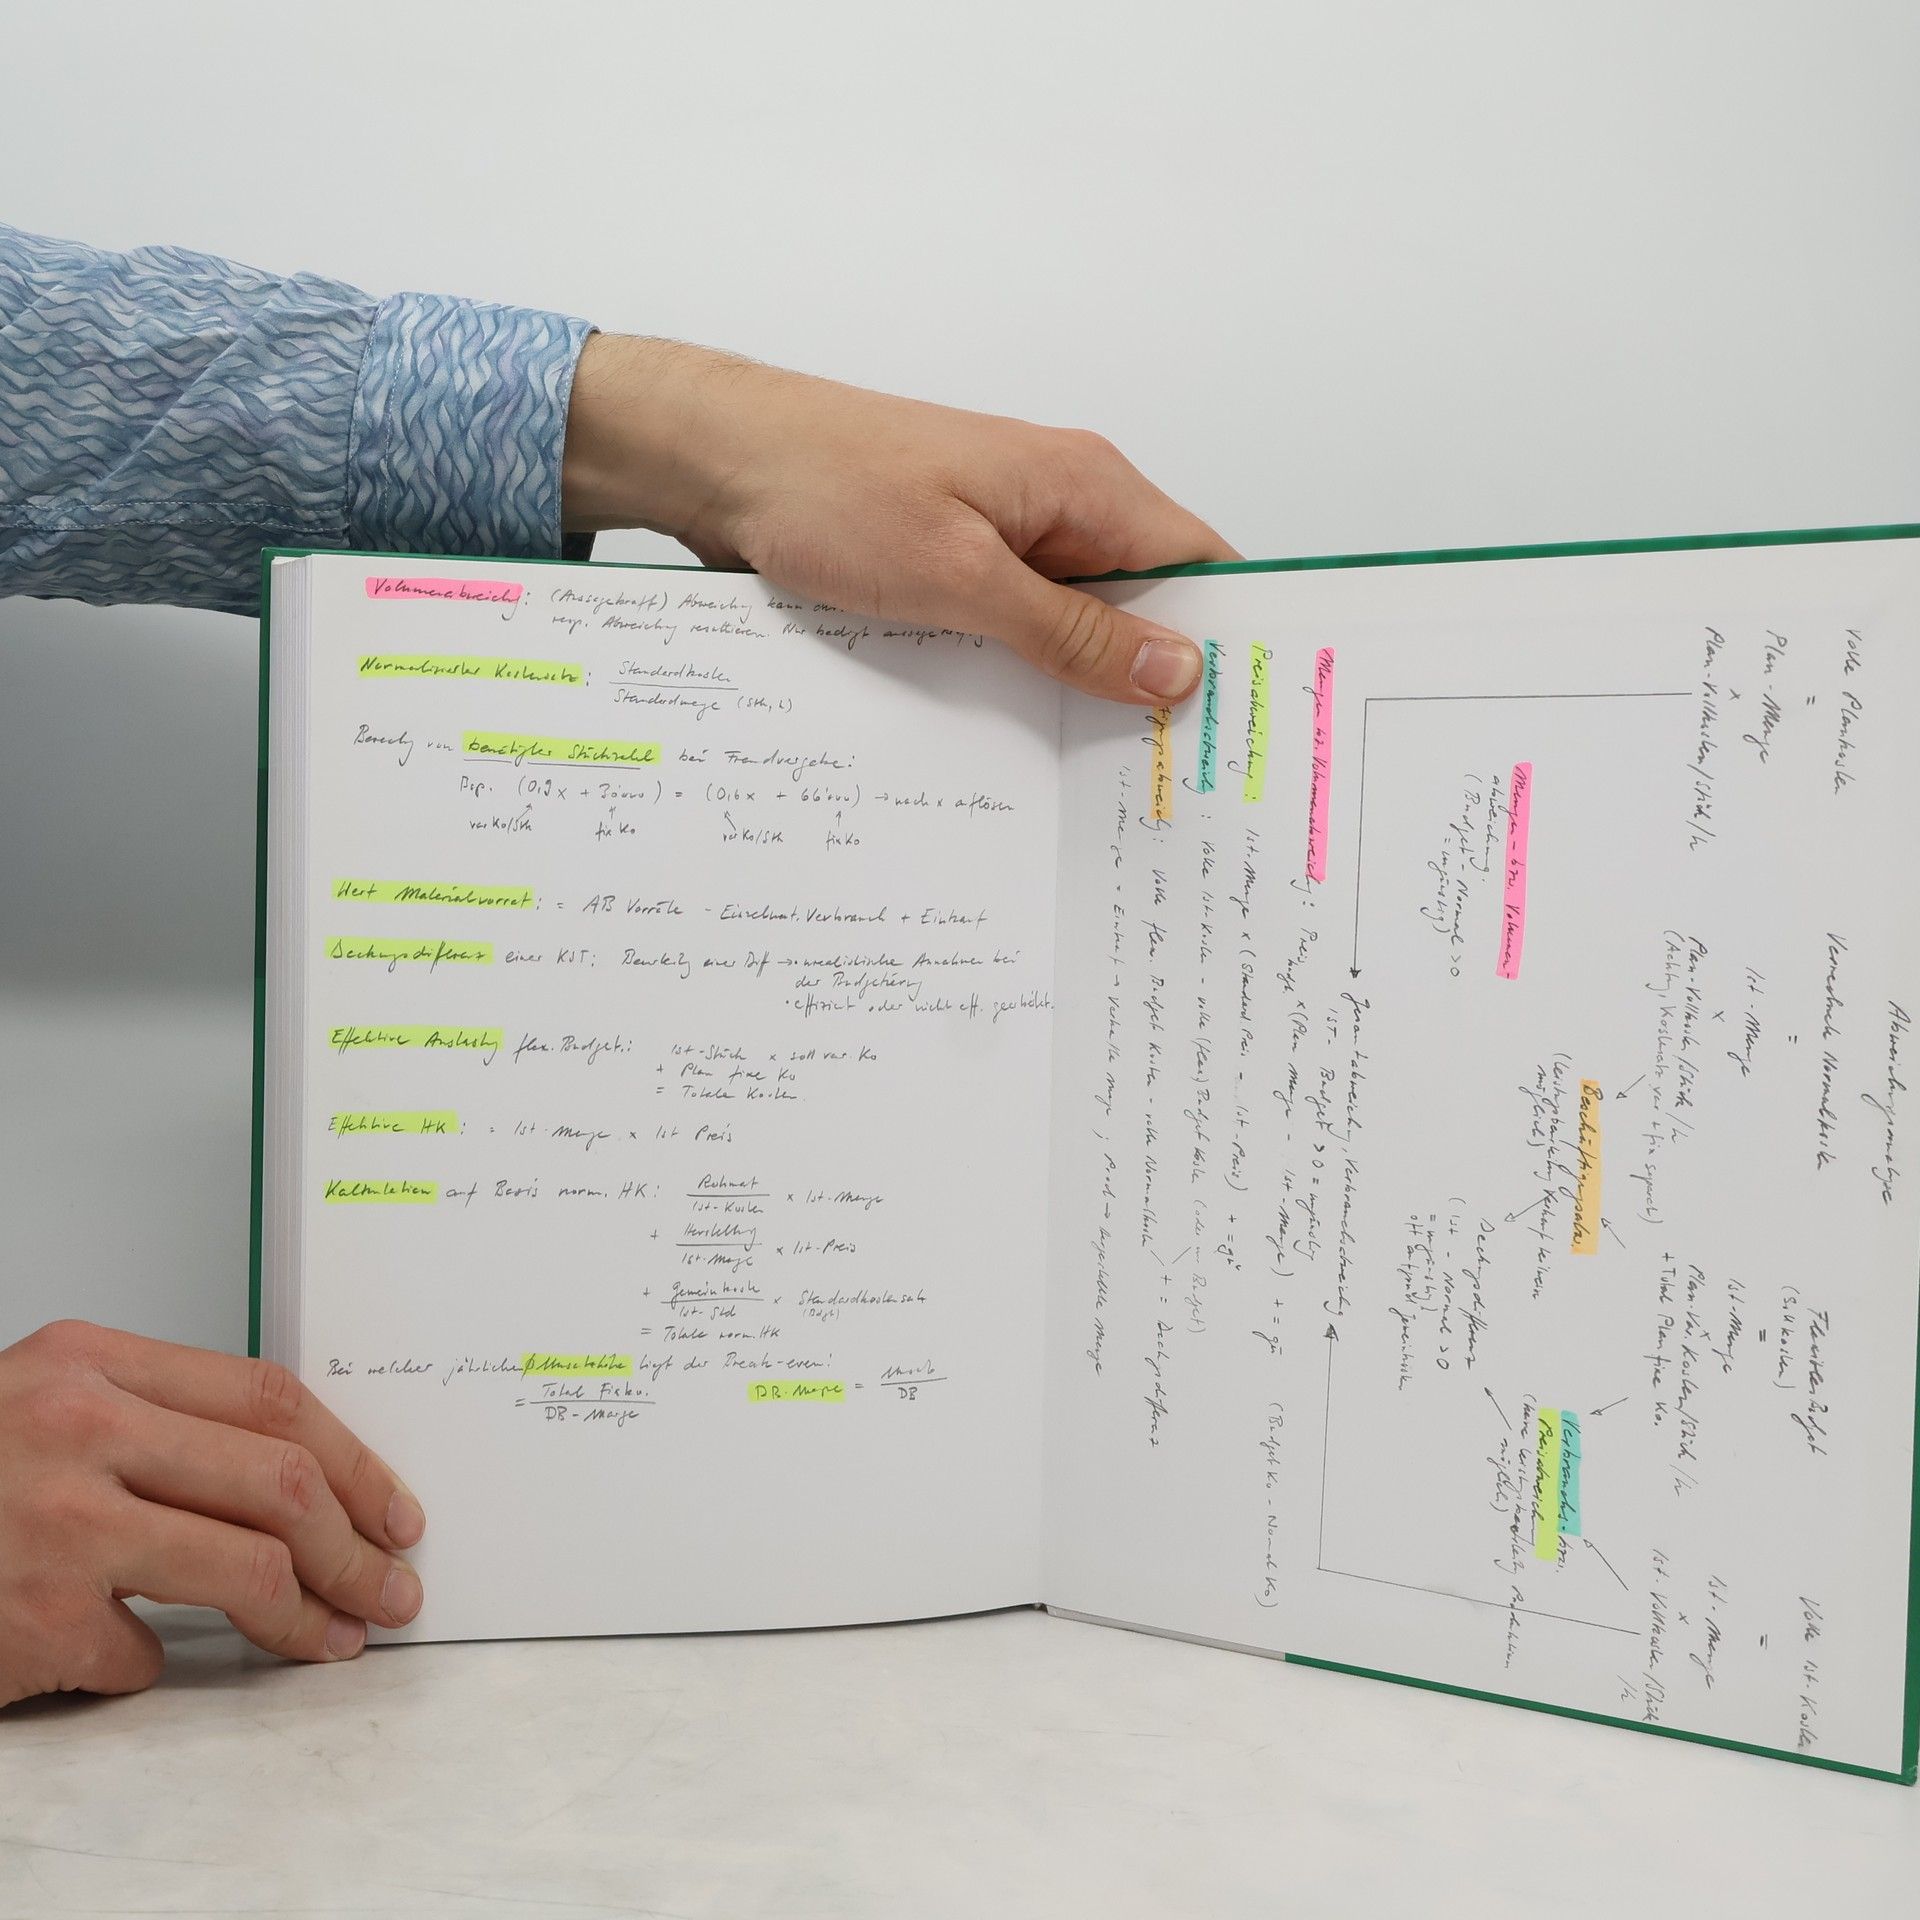 Volumenabweichg: (Aussagekraft) Abweichg kann
resp. Abweichg resultieren. Nur bedigt
Normalisierter Kostensatz: Standardkosten
Standardmenge (Stk, h)
Berechg von benötigter Stückzahl bei Fremdvergabe:
Bsp. (0,9x + 30'000) = (0,6x + 66'000) → nach x auflösen
var Ko/Stk fix Ko var Ko/Stk fix Ko
Wert Materialvorrat: = AB Vorräte - Einzelmat. Verbrauch + Einkauf
Deckungsdifferenz einer KST: Beurteilg einer Diff → unrealistische Annahmen bei
der Budgetierung
• effizient oder nicht eff. gearbeitet.
Effektive Auslastg flex. Budget: Ist-Stück x soll var. Ko
+ Plan fixe Ko
= Totale Kosten
Effektive HK: = Ist-Menge x Ist Preis
Kalkulation auf Basis norm. HK: Rohmat x Ist-Menge
Ist-Kosten
+ Herstellung x Ist-Preis
Ist-Menge
+ gemeinkosten x Standardkostensatz
Ist-Std (Budget)
= Totale norm. HK
Bei welcher jährlichen Umsatzhöhe liegt der Break-even?
= Total Fixko. DB-Marge = Umsatz
DB-Marge DB
Abweichungsanalyse
Volle Plankosten
=
Plan-Menge
x
Plan-Vollkosten/Stück/h
Verrechnete Normalkosten
=
Ist-Menge
x
Plan-Vollkosten/Stück/h
(Achtg, Kostensatz var + fix separat)
Flexibles Budget
(Sollkosten)
=
Ist-Menge
x
Plan-Var. Kosten/Stück/h
+ Total Plan fixe Ko.
Volle Ist-Kosten
=
Ist-Menge
x
Ist-Vollkosten/Stück
/h
Mengen- bzw. Volumen-
abweichung.
(Budget - Normal >0
= ungünstig)
Beschäftigungsabw.
(Leistungsbeurteilung Verkauf keinen
möglich)
Verbrauchs- bzw.
Preisabweichung
(keine Leistungsbeurteilg Produktion
möglich)
Deckungsdifferenz
(Ist - Normal >0
= ungünstig)
Gesamtabweichg, Verbrauchsabweichg
IST - Budget >0 = ungünstig
Mengen bzw. Volumenabweichg: Preis budg. x (Plan Menge - Ist-Menge) + = gü (Budget Ko - Normal Ko)
Preisabweichung: Ist-Menge x (Standard Preis - Ist-Preis) + = gü
Verbrauchsabweichg: Volle Ist-Kosten - volle (flex) Budget Kosten (oder Budget)
abweichg: Volle flex. Budget Kosten - volle Normalkosten + = Deckungsdifferenz
Ist-Menge = Einkauf → Verkaufte Menge; Prod → hergestellte Menge